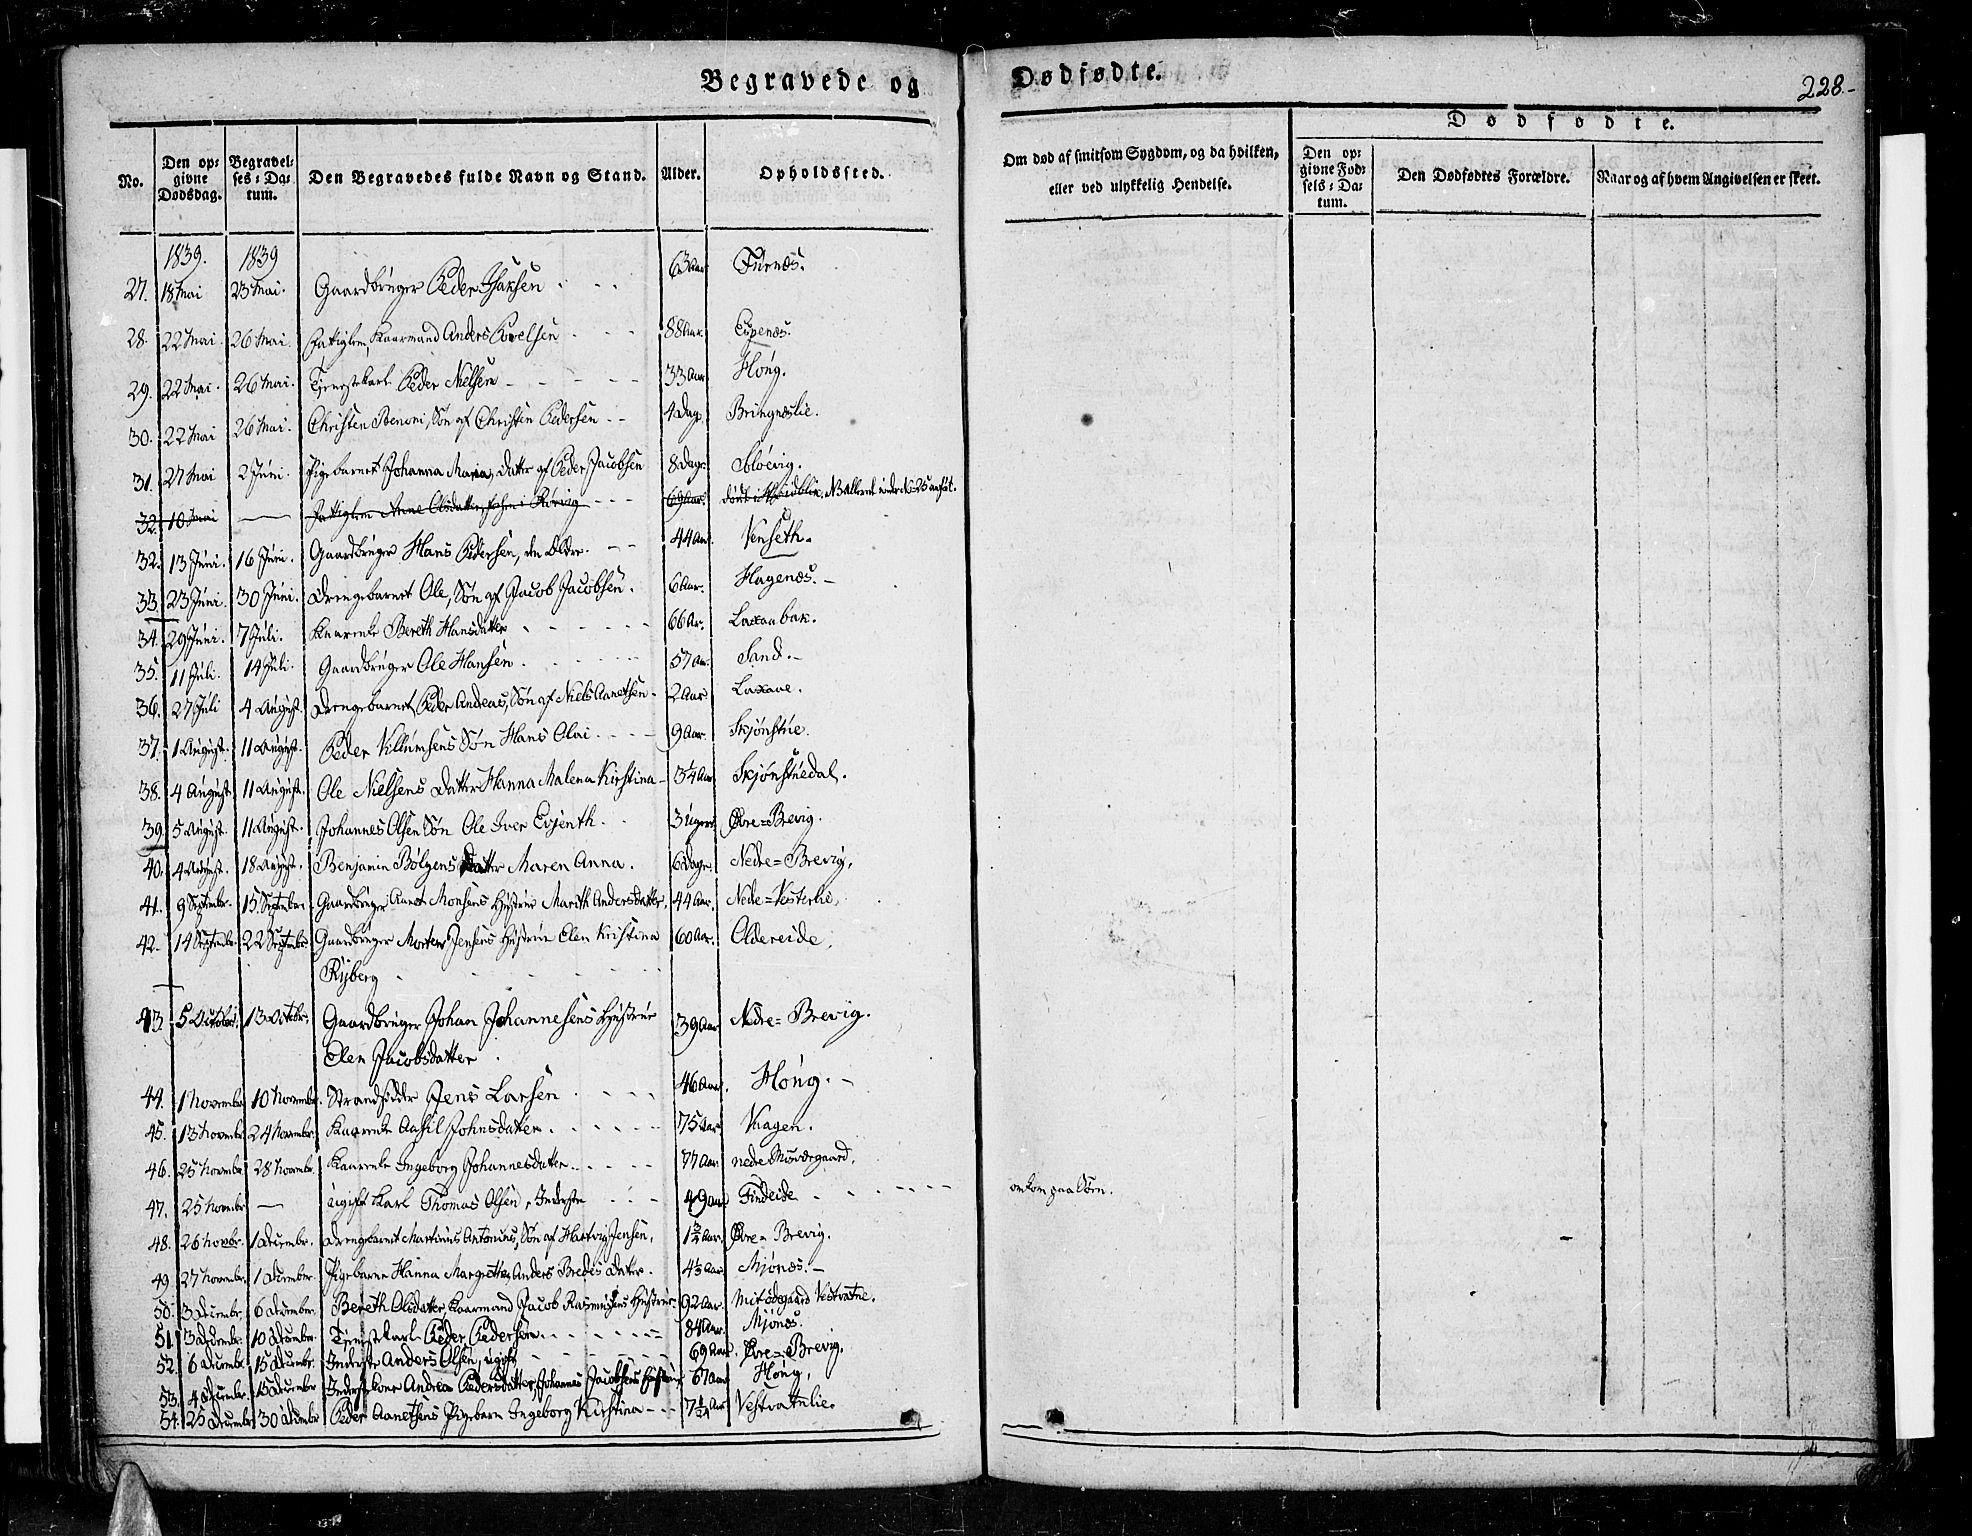 Begravede og Dødfødte.
228.-
No. | Den op-givne Dødsdag. | Begravel-ses-Da-tum. | Den Begravedes fulde Navn og Stand. | Alder. | Opholdssted. | Om død af smitsom Sygdom, og da hvilken, eller ved ulykkelig Hendelse. | Dødfødte. | Den op-givne Fød-sels-Da-tum. | Den Dødfødtes Forældre. | Naar og af hvem Angivelsen er skeet.
1839. 1839
27. 18 Mai 23 Mai. Gaardbruger Peder Isaksen 63 Aar Furnæs.
28. 22 Mai. 26 Mai. Fattiglem, Kaarmand Anders 88 Aar. Espenæs.
29. 22 Mai. 26 Mai. Tjenestekarl Peder Nielsen 33 Aar Høng.
30. 22 Mai 26 Mai. Christen Benoni, Søn af Christen Pedersen 4 Dag. Bringnæslie.
31. 27 Mai 2 Juni. Pigebarnet Johanna Maria, Datter af Peder Jacobsen 8 Dage
32. 10 Mai — Fattiglem Anne Olsdatter, 69 Aar.
32. 13 Juni. 16 Juni. Gaardbruger Hans Pedersen, den Ældre. 44 Aar. Venseth.
33. 23 Juni. 30 Juni. Drengebarnet Ole, Søn af Jacob Jacobsen. 6 Aar. Hagenæs.
34. 29 Juni. 7 Juli. Kaarenke Bereth Hansdatter 66 Ar. Laxaabak.
35. 11 Juli. 14 Juli. Gaardbruger Ole Hansen. 57 Aar Sand.
36. 27 Juli 4 August. Drengebarnet Peder Andreas, Søn af Niels Aanetsen 2 Aar Laxaae.
37. 1 August. 11 August. Peder Villumsens Søn Hans Olai 9 Aar. Skjønstue.
38. 4 August. 11 August. Ole Nielsens Datter Hanna Malena Kirstina 3¼ Aar Skjønstuedal.
39. 5 August. 11 August. Johannes Olsen Søn Ole Iver Evjenth. 3 Uger Øvre=Brevig.
40. 4 August. 18 August. Benjamin Bolgens Datter Maren Anna. 6 Dage. Nedre=Brevig.
41. 9 Septembr. 15 September Gaardbruger Aanet Monsens Hustrue Marith Andersdatter. 44 Aar. Nedre=Vesterlie.
42. 14 Septembr 22 Septembr Gaardbruger Morten Jensens Hustrue Elen Kristina 60 Aar. Oldereide.
Ryberg
43. 5 October. 13 Octobr. Gaardbruger Johan Johannesens Hustrue 39 Aar Nedre=Brevig.
Elen Jacobsdatter
44. 1 Novembr 10 Novembr. Strandsidder Jens Larsen 46 Aar. Høng.
45. 13 Novembr. 24 Novembr. Kaarenke Aasil Johnsdatter. 75 Aar Vaagen.
46. 25 Novembr 28 Novembr. Kaarenke Ingeborg Johannesdatter. 77 Aar. nedre Misværgaard.
47. 25 Novembr — ugift Karl Thomas Olsen, Inderste 49 Aar Findeide omkom paa Søen.
48. 26 Novbr. 1 Decembr. Drengebarnet Martinus Antonius, Søn af Hartvig Jensen, 1¾ Aar. Øvre=Brevig.
49. 27 Novembr. 1 December Pigebarne Hanna Margrethe, Anders Bredes Datter. 4½ Aar Mjønæs.
50. 3 Decembr. 6 Decembr. Bereth Olsdatter, Kaarmand Jacob Rasmussens Hustrue 92 Aar. Vestvatne.
51. 3 Decembr. 10 Decembr. Tjenestekarl Peder Pedersen. 84 Aar. Mjønæs.
52. 6 Decembr. 15 Decembr. Inderste Anders Olsen, ugift 69 Aar. Øvre=Brevig.
53. 4 Decembr. 15 Decembr Inderstekone Andrea Pedersdatter, Johannes Jacobsens Hustrue 67 Aar Høng.
54. 25 Decembr 30 Decembr Peder Aanetsens Pigebarn Ingeborg Kirstina Vestvatnlie.